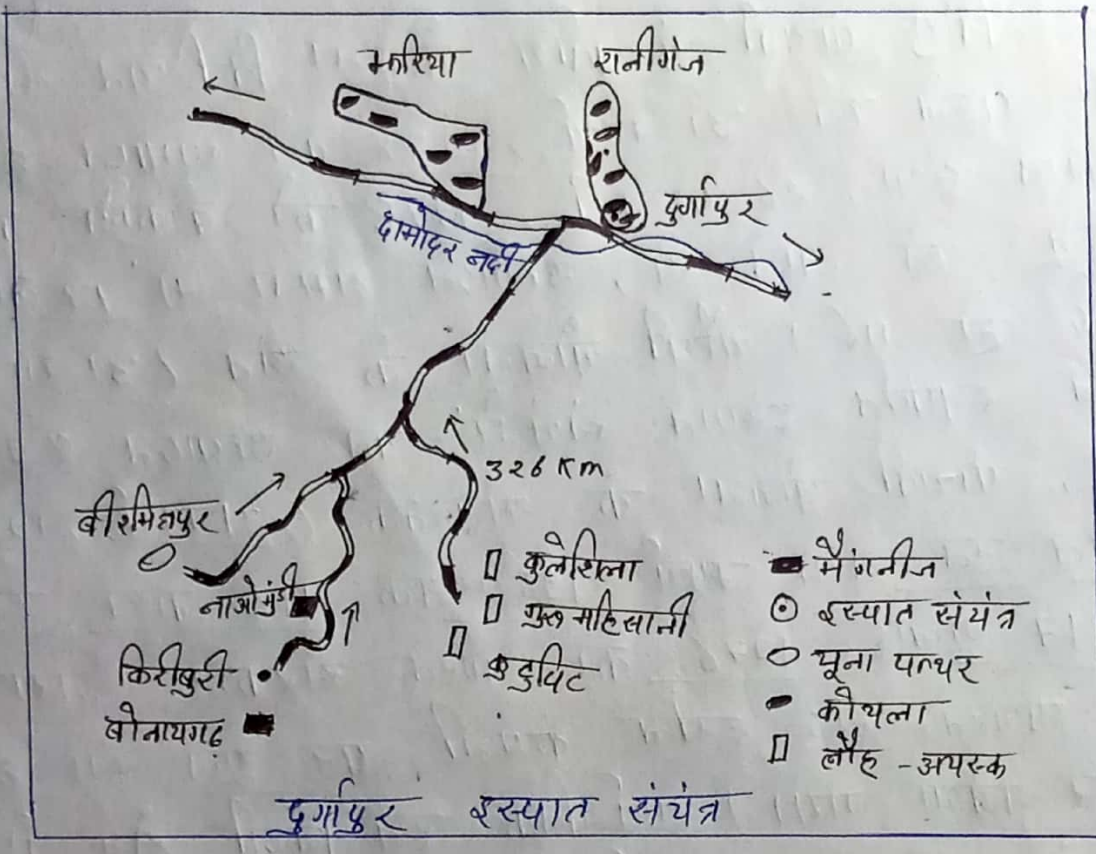 झरिया
रानीगंज
दुर्गापुर
दामोदर नदी
326 Km
बीरमित्रपुर
नाओमुंडी
किरीबुरी
बोनायगढ़
कुलेशिला
गुरुमहिसानी
मैंगनीज
इस्पात संयंत्र
चूना पत्थर
कोयला
लौह - अयस्क
दुर्गापुर इस्पात संयंत्र